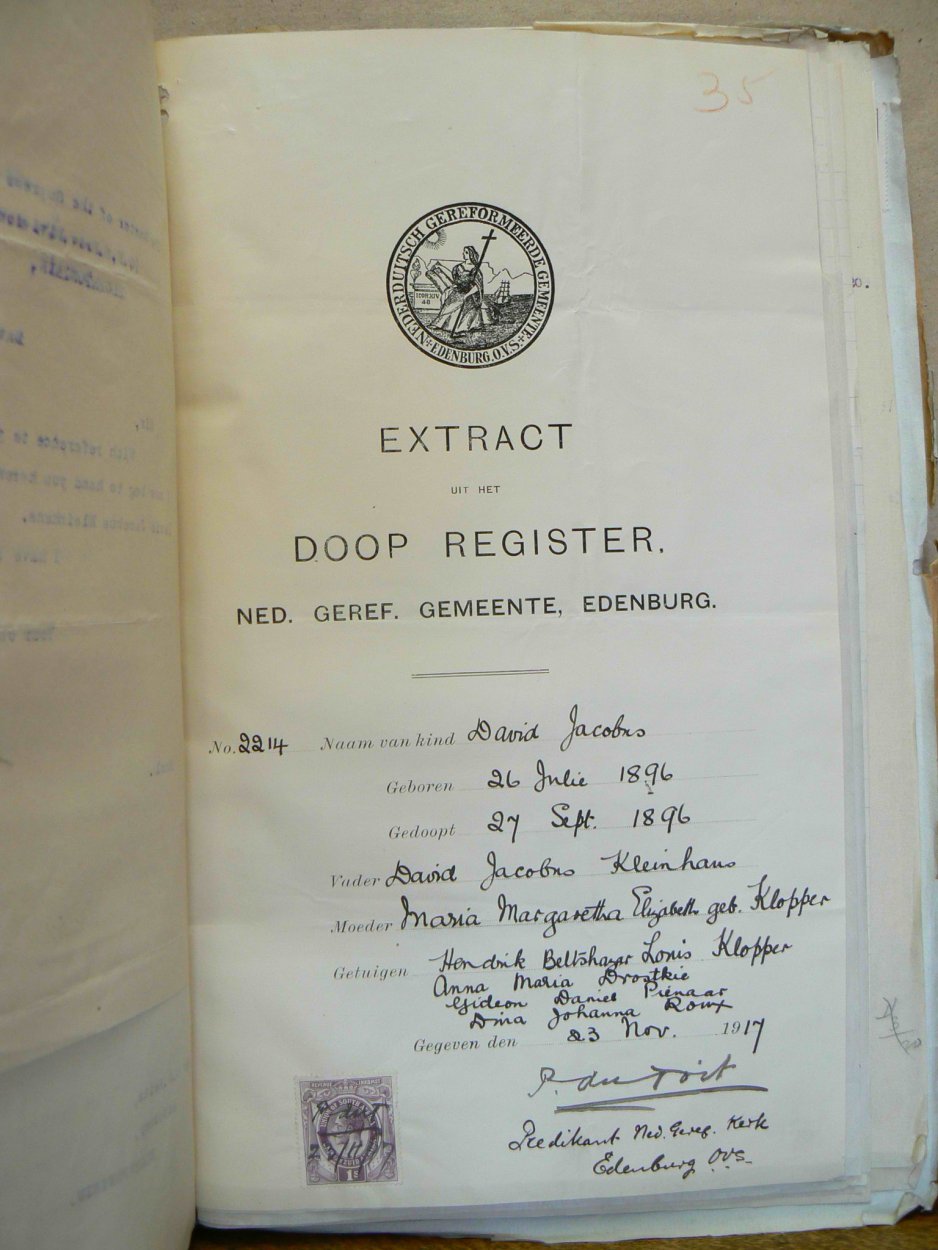 35
NEDERDUITSCH GEREFORMEERDE GEMEENTE
EDENBURG. O.V.S.
EXTRACT
UIT HET
DOOP REGISTER.
NED. GEREF. GEMEENTE, EDENBURG.
No. 2214 Naam van kind David Jacobus
Geboren 26 Julie 1896
Gedoopt 27 Sept. 1896
Vader David Jacobus Kleinhans
Moeder Maria Margaretha Elizabeth geb. Klopper
Getuigen Hendrik Beltshazar Louis Klopper
Anna Maria Drostkie
Gideon Daniel Pienaar
Dina Johanna Roux
Gegeven den 23 Nov. 1917
P. du Toit
Predikant Ned. Geref. Kerk
Edenburg OVS.
REVENUE INKOMST
1s